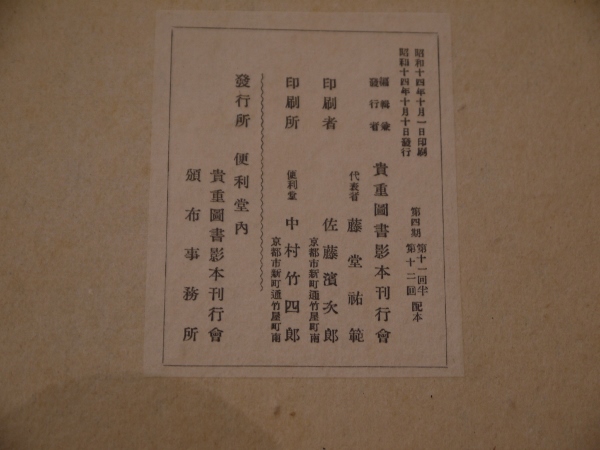 昭和十四年十月一日印刷
昭和十四年十月十日發行
第四期
第十一回半
第十二回
配本
編輯兼
發行者
貴重圖書影本刊行會
代表者 藤堂祐範
印刷者 佐藤濱次郎
京都市新町通竹屋町南
印刷所 便利堂 中村竹四郎
京都市新町通竹屋町南
發行所 便利堂內
貴重圖書影本刊行會
頒布事務所